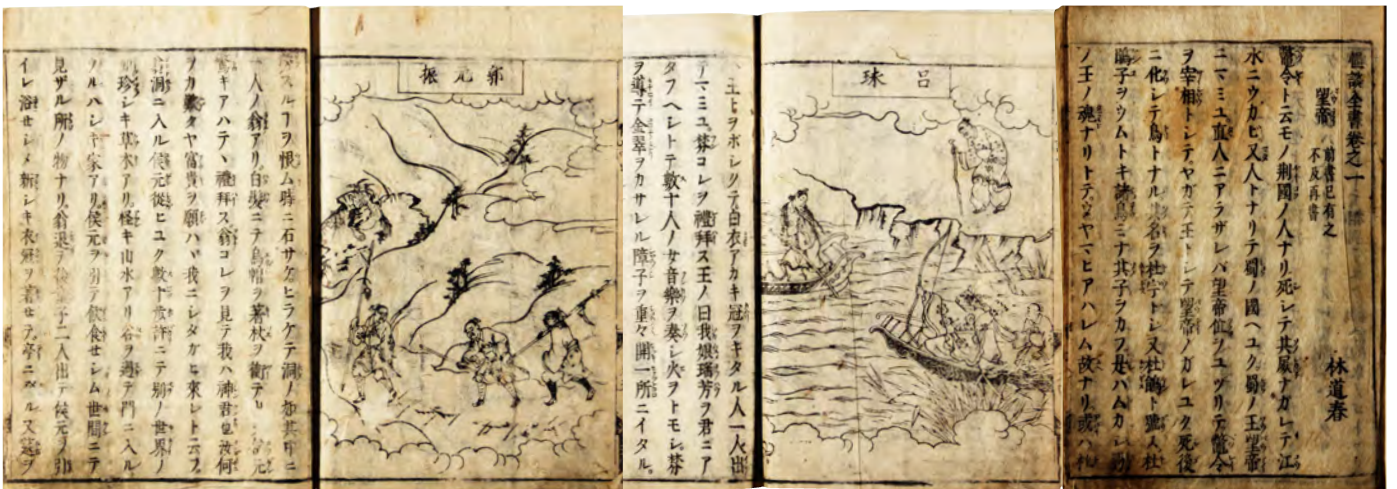 怪談全書巻之一
林道春
望帝 前書已有之
不及再書
鼈令ト云モノ荆國ノ人ナリ死シテ其屍ナガレテ江
水ニウカヒ又人トナリテ蜀ノ國ヘユク蜀ノ王望帝
ニマミユ直人ニアラザレバ望帝位ヲユツリテ鼈令
ヲ宰相トシテヤガテ王トシテ望帝ノガレユク死後
ニ化シテ鳥トナル其名ヲ杜宇トシ又杜鵑ト號ス杜
鵑子ヲウムトキ諸鳥ミナ其子ヲカフ是ハムカシ蜀
ノ王ノ魂ナリトテウヤマヒアハレム故ナリ或ハ
呂球
王トヲボシクテ白衣アカキ冠ヲキタル人一人出
テマミユ棼コレヲ禮拜ス王ノ曰我娘瑤芳ヲ君ニア
タフヘシトテ數十人ノ女音樂ヲ奏シ火ヲトモシ棼
ヲ導テ金翠ヲカサレル障子ヲ重々開一所ニイタル
郭元振
スルヿヲ恨ム時ニ石サケヒラケテ洞ノ如其中ニ
一人ノ翁アリ白髪ニテ烏帽ヲ著杖ヲ衝テ元
キアハテヽ禮拜ス翁コレヲ見テ我ハ神君也汝何
ヲカ歎クヤ富貴ヲ願ハヽ我ニシタガヒ來レト云フ
洞ニ入ル侯元從ヒユク數十歩許ニテ別ノ世界ノ
珍シキ草木アリ怪キ山水アリ谷ヲ過テ門ニ入ル
ルハシキ家アリ侯元ヲ引テ飲食セシム世間ニテ
見ザル所ノ物ナリ翁退テ後童子二人出テ侯元ヲ引
イレ浴セシメ新シキ衣冠ヲ著セテ亭ニノボル又筵ヲ